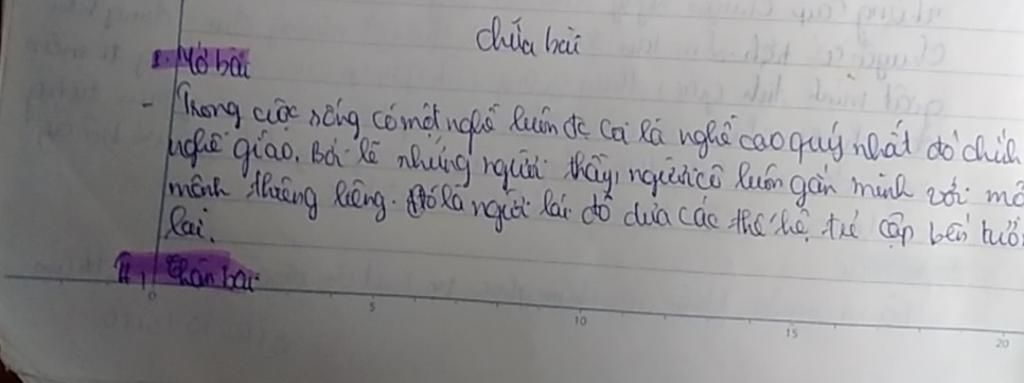 Chữa bài
I. Mở bài
- Trong cuộc sống có một nghề luôn đc coi là nghề cao quý nhất đó chính
nghề giáo. Bởi lẽ những người thầy, người cô luôn gắn mình với
mệnh thiêng liêng. Đó là người lái đò đưa các thế hệ trẻ cập bến
lai.
II, Thân bài
0 5 10 15 20